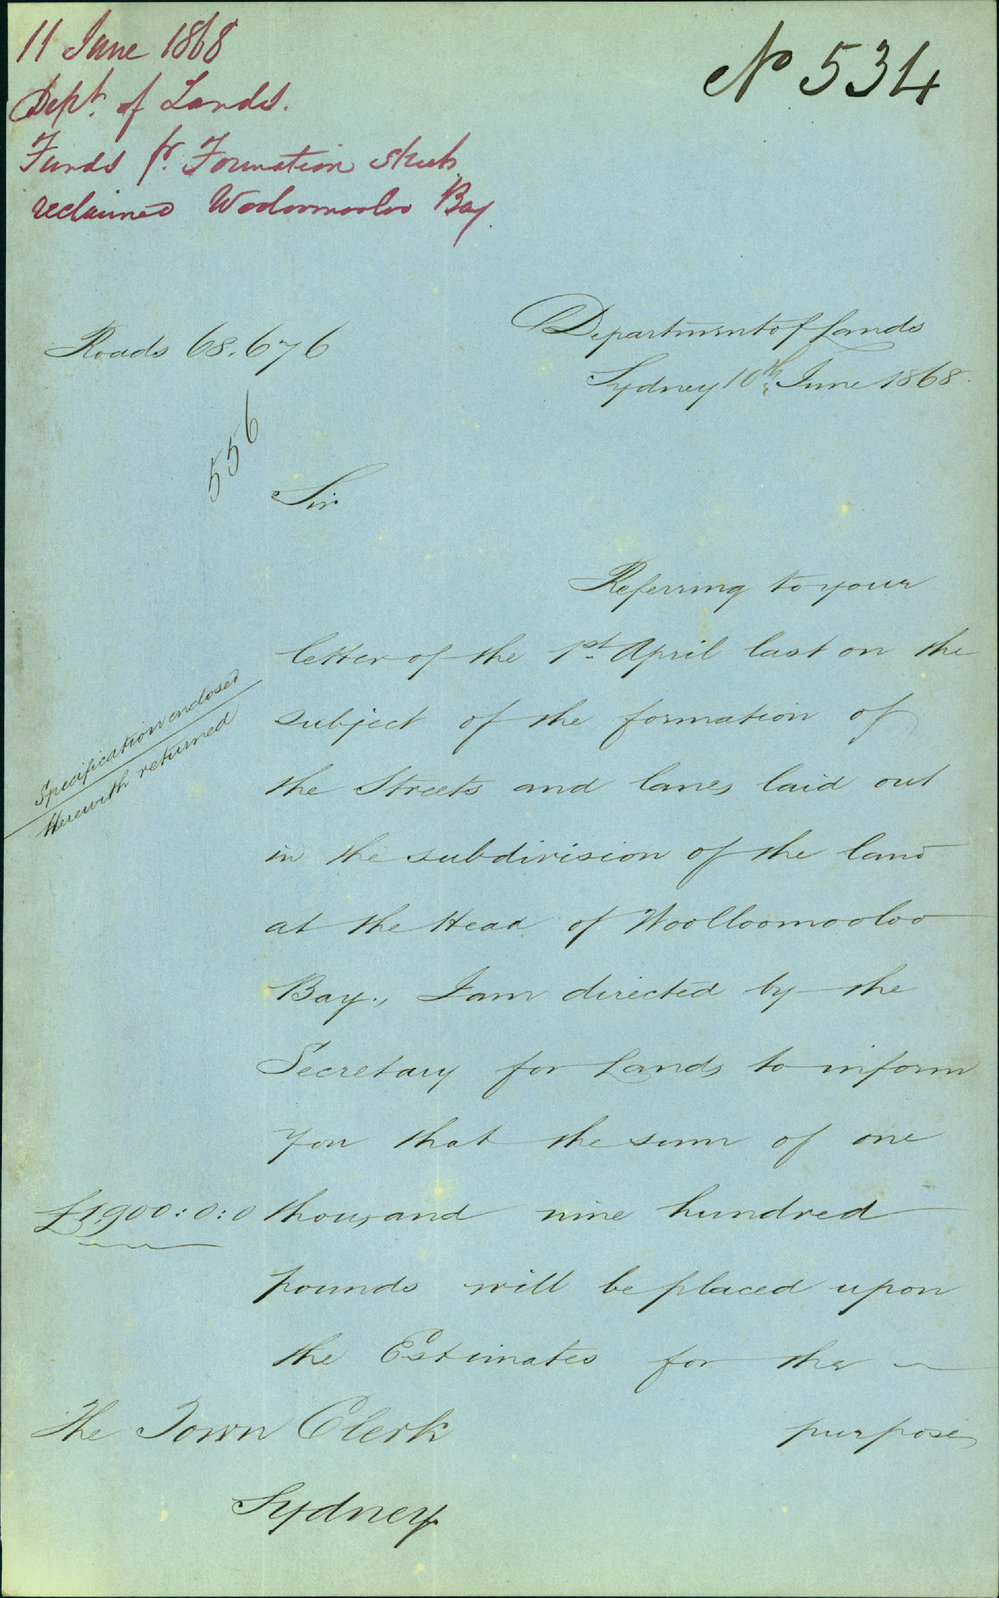 11 June 1868
Dept. of Lands.
Funds fr. Formation streets
reclaimed Wooloomooloo Bay.
No 534
Roads 68.676
556
Department of Lands
Sydney 10th June 1868.
Sir
Referring to your
letter of the 1st April last on the
subject of the formation of
the Streets and lanes laid out
in the subdivision of the land
at the Head of Woolloomooloo
Bay., I am directed by the
Secretary for Lands to inform
you that the sum of one
thousand nine hundred
pounds will be placed upon
the Estimates for the
purpose,
Specification enclosed
Herewith returned
£1,900:0:0
The Town Clerk
Sydney